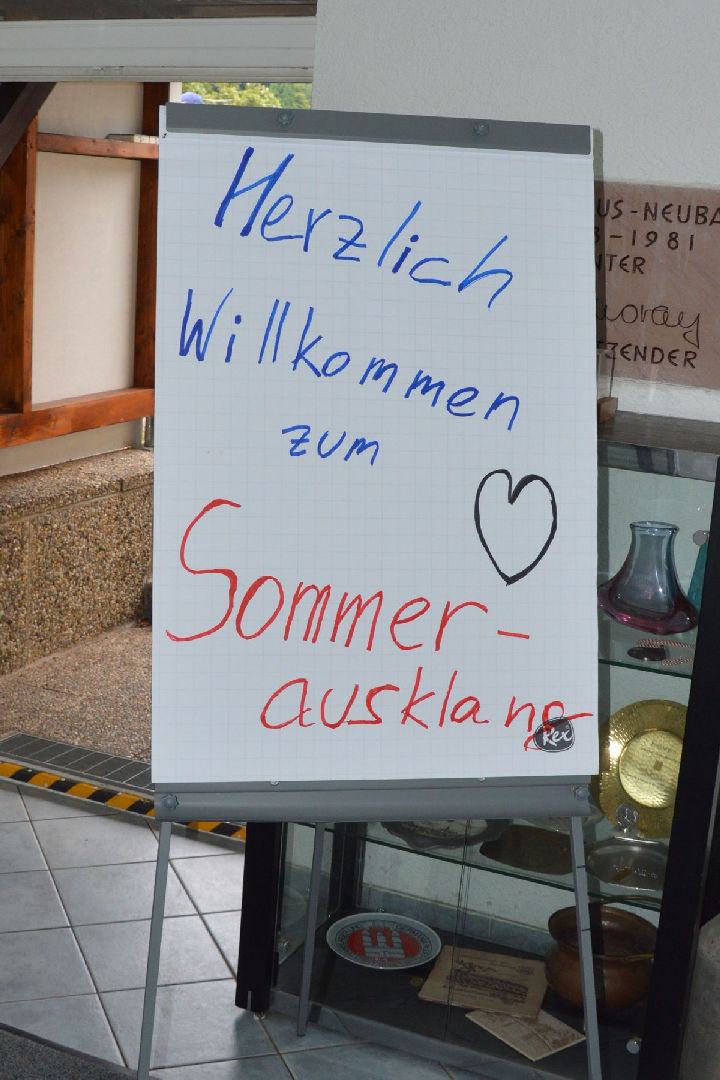 Herzlich
Willkommen
zum
Sommer-
ausklang
Rex
US-NEUBA
-1981
TER
ZENDER